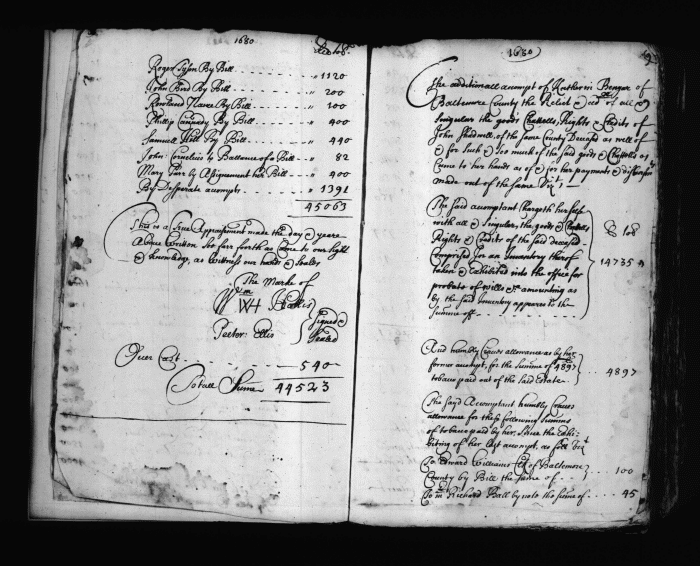 1680
lb tob.
Roger Sysen By Bill . . . . . . . . . „ 1120
John Bird By Bill . . . . . . . . . „ 200
Rowland By Bill . . . . . . . „ 100
Phillip By Bill . . . . . . . „ 400
Samuell Hill By Bill . . . . . . . „ 440
John Cornelius to Ballance of a Bill . . „ 82
Mary by Assignment her Bill . . . „ 400
By Desperate accompts . . . . . „ 1391
45063
This is a True Appraisement made the day & yeare
Above Written soe farr forth as Came to our sight
& knowledge, as Wittness our hands & Seales
The Marke of
Wm WH
Peeter: Ellis
Signed &
Sealed
Over Cast . . . . . . . . 540
Totall Sume 44523
1680
The additionall accompt of of
Baltimore County the Relict & of all &
Singular the goods Chattells, Rights & Credits of
John of the same County Deceased as well of
& for Such & Soo much of the said goods & Chattells as
Came to her hands as of & for her payments &
made out of the same Vizt. —
The said accomptant Chargeth her self
with all & Singular, the goods & Chattells
Rights & Credits of the said deceased
Comprised for an Inventory thereof
taken & Exhibited into the office for
probate of wills &c amounting as
by the said Inventory appeares to the
Summe off . . . . . . . . . .
lb tob
14735
And humbly Craves allowance as by her
former accompt, for the Summe of 4897
tobacco paid out of the said Estate.
. . 4897
The sayd Accomptant humbly Craves
allowance for these following Summs
of tobacco paid by her, Since the Exhi-
biting of her last accompt, as foll Vizt
To Edward Williams of Baltemore
County by Bill the sume of . . . . . 100
To Mr. Richard Ball by note the sume of . . . . 45